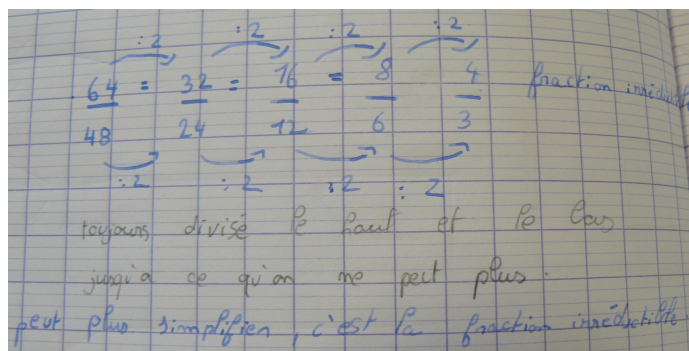 :2 :2 :2 :2
64 = 32 = 16 = 8 4 fraction irréductible
48 24 12 6 3
:2 :2 :2 :2
toujours divisé le haut et le bas
jusqu'a ce qu'on ne peut plus.
peut plus simplifier, c'est la fraction irréductible.